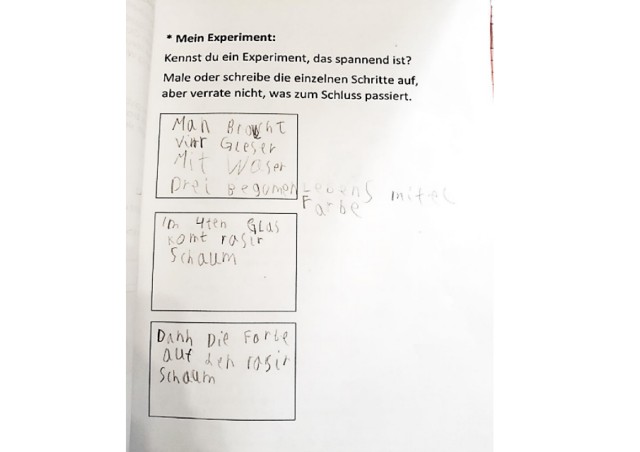 * Mein Experiment:
Kennst du ein Experiment, das spannend ist?
Male oder schreibe die einzelnen Schritte auf,
aber verrate nicht, was zum Schluss passiert.
Man Brauht
Virr Gleser
Mit Waser
Drei Begomen Lebens mitel
Farbe
im 4ten Glas
komt rasir
Schaum
Dann Die Farbe
auf den rasir
Schaum